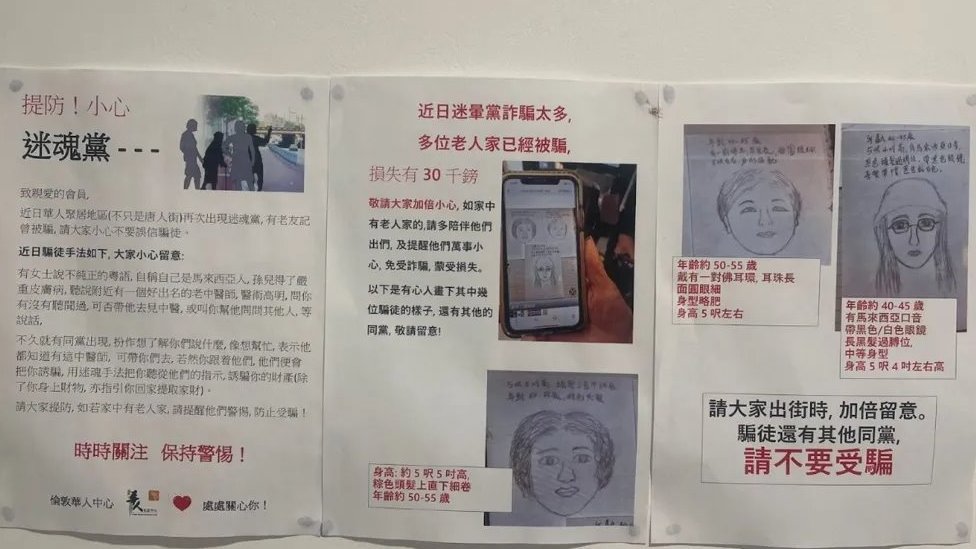 提防！小心
迷魂黨 - - -
致親愛的會員,
近日華人聚居地區(不只是唐人街)再次出現迷魂黨, 有老友記
曾被騙, 請大家小心不要誤信騙徒。
近日騙徒手法如下, 大家小心留意:
有女士說不純正的粵語, 自稱自己是馬來西亞人, 孫兒得了嚴
重皮膚病, 聽說附近有一個好出名的老中醫師, 醫術高明, 問你
有沒有聽聞過, 可否帶他去見中醫, 或叫你幫他問問其他人, 等
說話,
不久就有同黨出現, 扮作想了解你們說什麼, 像想幫忙, 表示他
都知道有這中醫師, 可帶你們去, 若然你跟着他們, 他們便會
把你誘騙, 用迷魂手法把你聽從他們的指示, 誘騙你的財產(除
了你身上財物, 亦指引你回家提取家財)。
請大家提防, 如若家中有老人家, 請提醒他們警惕, 防止受騙！
時時關注 保持警惕！
倫敦華人中心
處處關心你！
近日迷暈黨詐騙太多,
多位老人家已經被騙,
損失有 30 千鎊
敬請大家加倍小心, 如家中
有老人家的,請多陪伴他們
出們, 及提醒他們萬事小
心, 免受詐騙, 蒙受損失。
以下是有心人畫下其中幾
位騙徒的樣子, 還有其他的
同黨, 敬請留意!
身高: 約 5 呎 5 吋高,
棕色頭髮上直下細卷
年齡約 50-55 歲
年齡約 50-55 歲
戴有一對佛耳環, 耳珠長
面圓眼細
身型略肥
身高 5 呎左右
年齡約 40-45 歲
有馬來西亞口音
帶黑色/白色眼鏡
長黑髮過膊位,
中等身型
身高 5 呎 4 吋左右高
請大家出街時, 加倍留意。
騙徒還有其他同黨,
請不要受騙